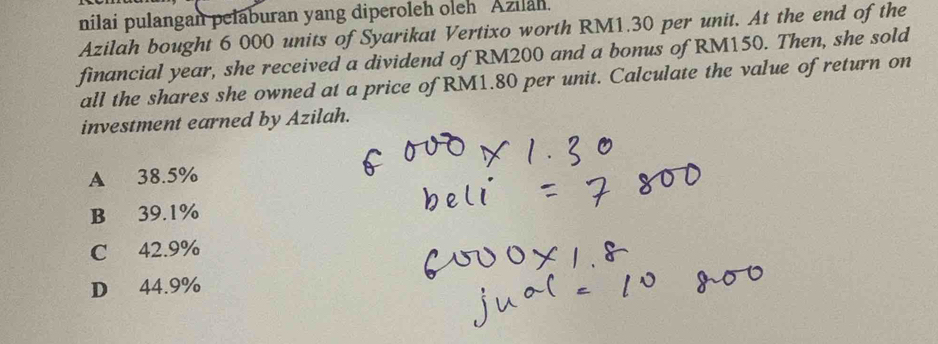 nilai pulangan pelaburan yang diperoleh oleh Azilah.
Azilah bought 6 000 units of Syarikat Vertixo worth RM1.30 per unit. At the end of the
financial year, she received a dividend of RM200 and a bonus of RM150. Then, she sold
all the shares she owned at a price of RM1.80 per unit. Calculate the value of return on
investment earned by Azilah.
A 38.5%
B 39.1%
C 42.9%
D 44.9%
6 000 × 1.30
beli = 7 800
6000 × 1.8
jual = 10 800